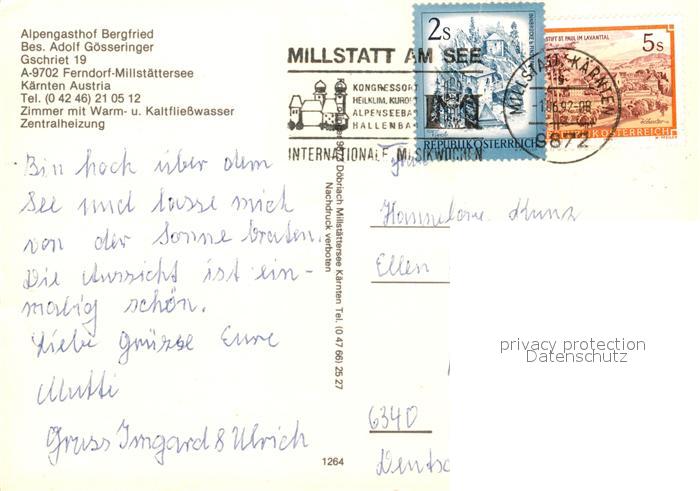 Alpengasthof Bergfried
Bes. Adolf Gösseringer
Gschriet 19
A-9702 Ferndorf-Millstättersee
Kärnten Austria
Tel. (0 42 46) 21 05 12
Zimmer mit Warm- u. Kaltfließwasser
Zentralheizung
MILLSTATT AM SEE
KONGRESSORT
HEILKLIM. KURO
ALPENSEEBA
HALLENBA
INTERNATIONALE MUSIKWOCHEN
2s
REPUBLIK ÖSTERREICH
STIFT ST. PAUL IM LAVANTTAL
5s
REPUBLIK ÖSTERREICH
MILLSTATT, KÄRNTEN
9872
Bin hoch über dem
See und lasse mich
von der Sonne braten.
Die Aussicht ist ein-
malig schön.
Liebe Grüsse Eure
Mutti
Gruss Irmgard & Ulrich
Döbriach Millstättersee Kärnten Tel. (0 47 66) 25 27
Nachdruck verboten
1264
Hannelore Kunz
Ellen
6340
Deutsc
privacy protection
Datenschutz